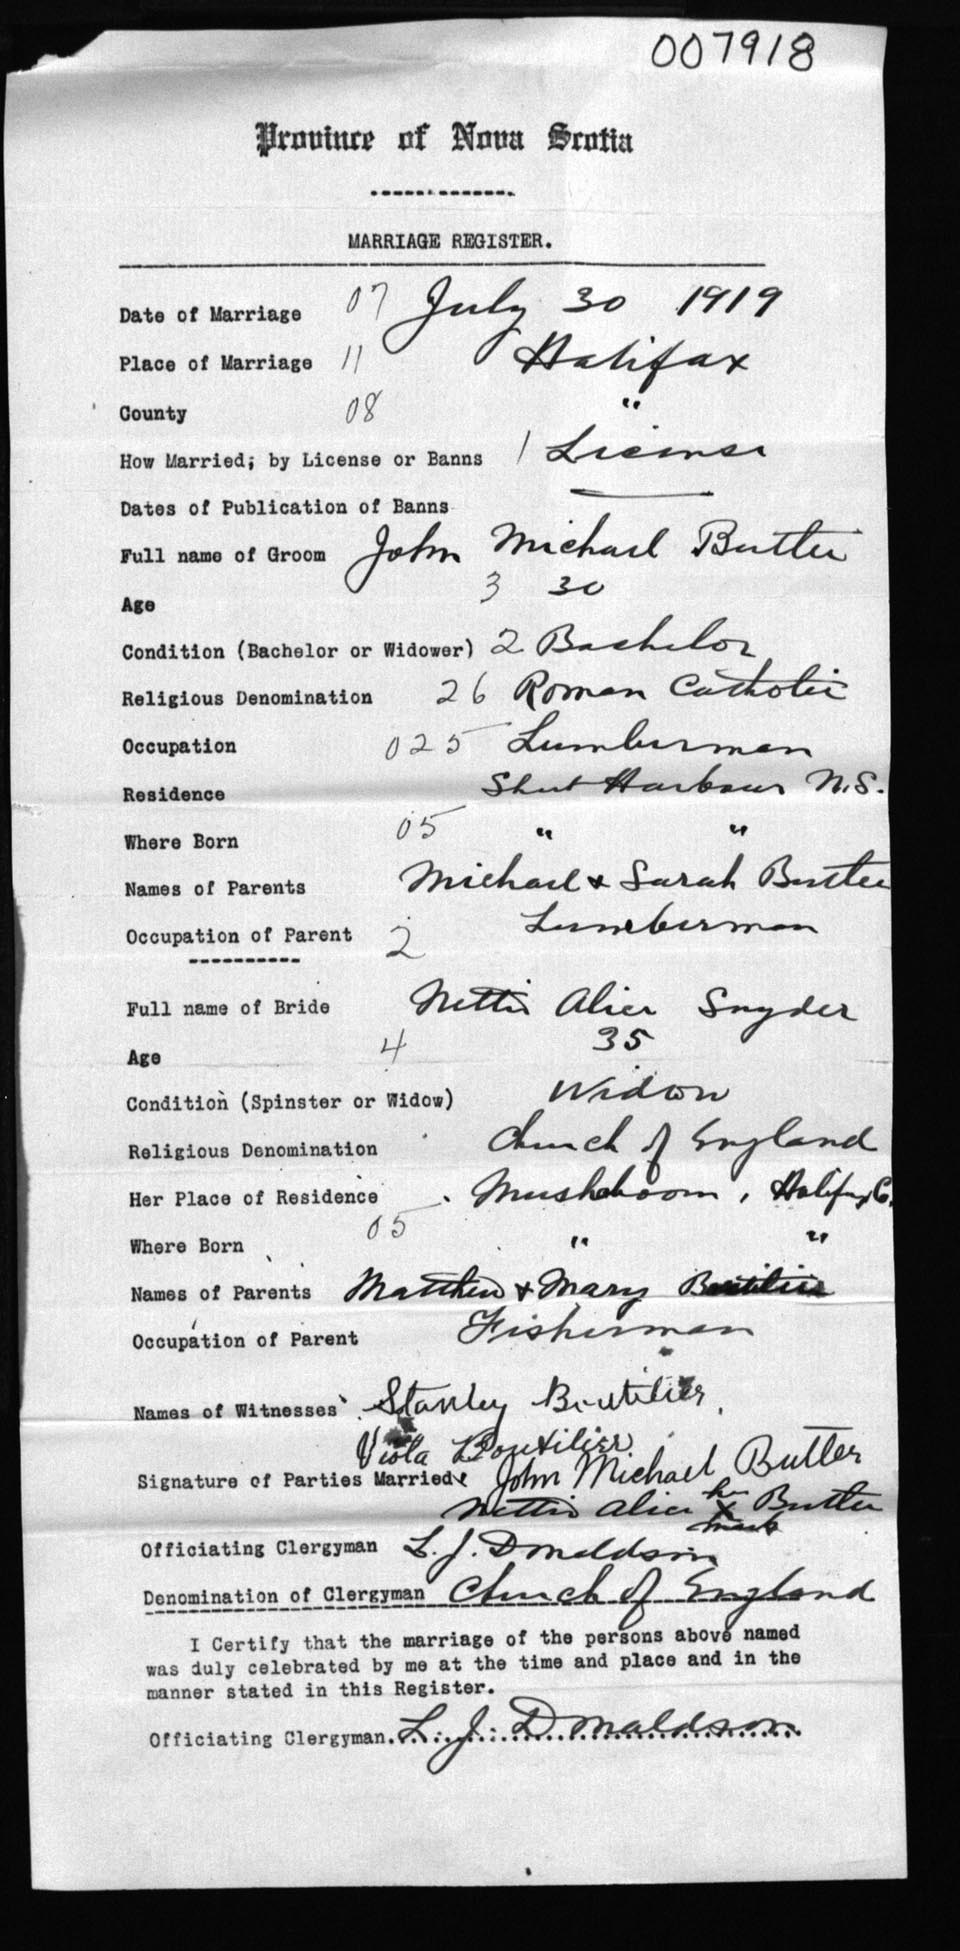 007918
Province of Nova Scotia
MARRIAGE REGISTER.
Date of Marriage 07 July 30 1919
Place of Marriage 11 Halifax
County 08 "
How Married; by License or Banns 1 License
Dates of Publication of Banns
Full name of Groom John Michael Butler
Age 3 30
Condition (Bachelor or Widower) 2 Bachelor
Religious Denomination 26 Roman Catholic
Occupation 025 Lumberman
Residence Harbour N.S.
Where Born 05 " "
Names of Parents Michael & Sarah Butler
Occupation of Parent 2 Lumberman
Full name of Bride Nettie Alice Snyder
Age 4 35
Condition (Spinster or Widow) Widow
Religious Denomination Church of England
Her Place of Residence Mushaboom, Halifax C.
Where Born 05 " "
Names of Parents Matthew & Mary Boutilier
Occupation of Parent Fisherman
Names of Witnesses Stanley Boutilier
Viola Boutilier
Signature of Parties Married John Michael Butler
Nettie Alice her x mark Butler
Officiating Clergyman L. J. Donaldson
Denomination of Clergyman Church of England
I Certify that the marriage of the persons above named
was duly celebrated by me at the time and place and in the
manner stated in this Register.
Officiating Clergyman. L. J. Donaldson